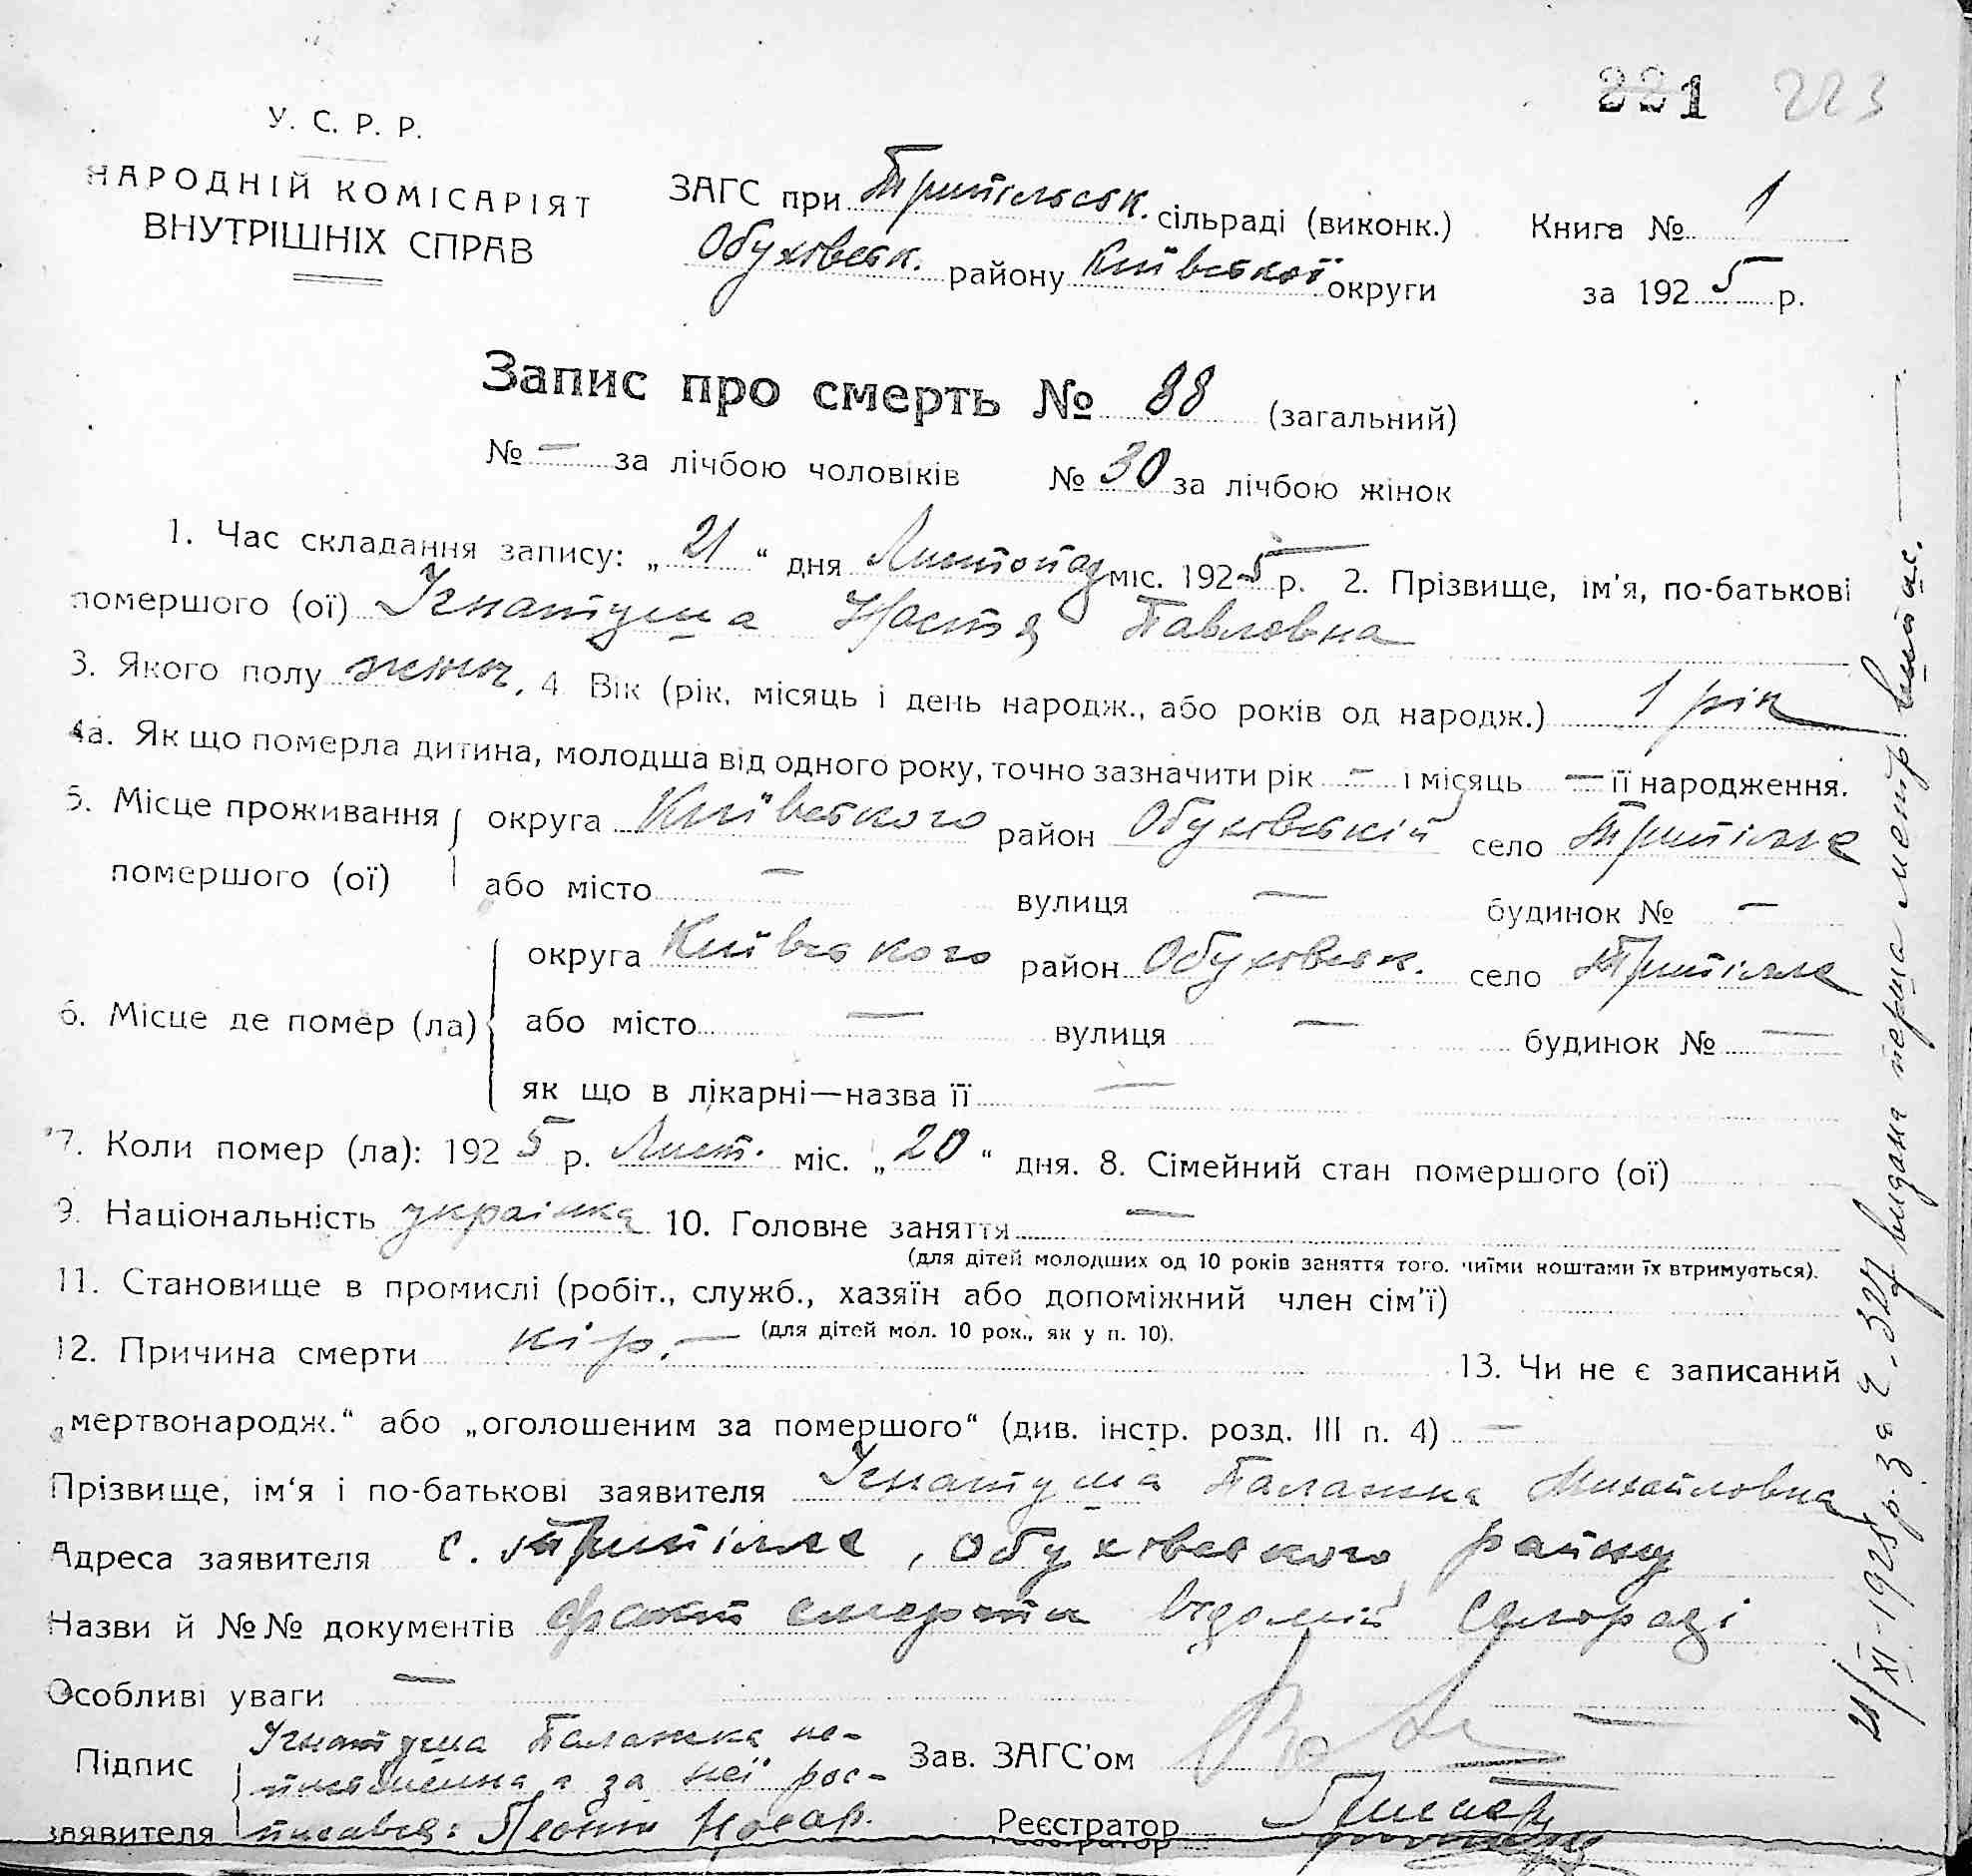 221 223
У. С. Р. Р.
НАРОДНІЙ КОМІСАРІЯТ
ВНУТРІШНІХ СПРАВ
ЗАГС при Трипільськ. сільраді (виконк.) Книга № 1
Обухівськ. району Київської округи за 1925 р.
Запис про смерть № 88 (загальний)
№ — за лічбою чоловіків № 30 за лічбою жінок
1. Час складання запису: „21“ дня Листопад міс. 1925 р. 2. Прізвище, ім'я, по-батькові
помершого (ої) Ігнатуша Настя Павловна
3. Якого полу жіноч. 4 Вік (рік, місяць і день народж., або років од народж.) 1 рік
4а. Як що померла дитина, молодша від одного року, точно зазначити рік — і місяць — її народження.
5. Місце проживання округа Київського район Обухівській село Трипілля
помершого (ої) або місто — вулиця — будинок № —
округа Київського район Обухівськ. село Трипілля
6. Місце де помер (ла) або місто — вулиця — будинок № —
як що в лікарні—назва її —
7. Коли помер (ла): 1925 р. Лист. міс. „20“ дня. 8. Сімейний стан помершого (ої)
9. Національність українка 10. Головне заняття —
(для дітей молодших од 10 років заняття того, чиїми коштами їх втримується).
11. Становище в промислі (робіт., служб., хазяїн або допоміжний член сім'ї)
(для дітей мол. 10 рок., як у п. 10).
12. Причина смерти кір. — 13. Чи не є записаний
„мертвонародж.“ або „оголошеним за помершого“ (див. інстр. розд. III п. 4) —
Прізвище, ім'я і по-батькові заявителя Ігнатуша Палажка Михайловна
Адреса заявителя с. Трипілля, Обухівського району
Назви й №№ документів факт смерти відомій Сільраді
Особливі уваги —
Підпис заявителя Ігнатуша Палажка не-
письменна а за неї рос-
писався: Леонтій Косар.
Зав. ЗАГС'ом
Реєстратор
21/XI-1928 р. за ч. 327 видана перша метр. виписъ.